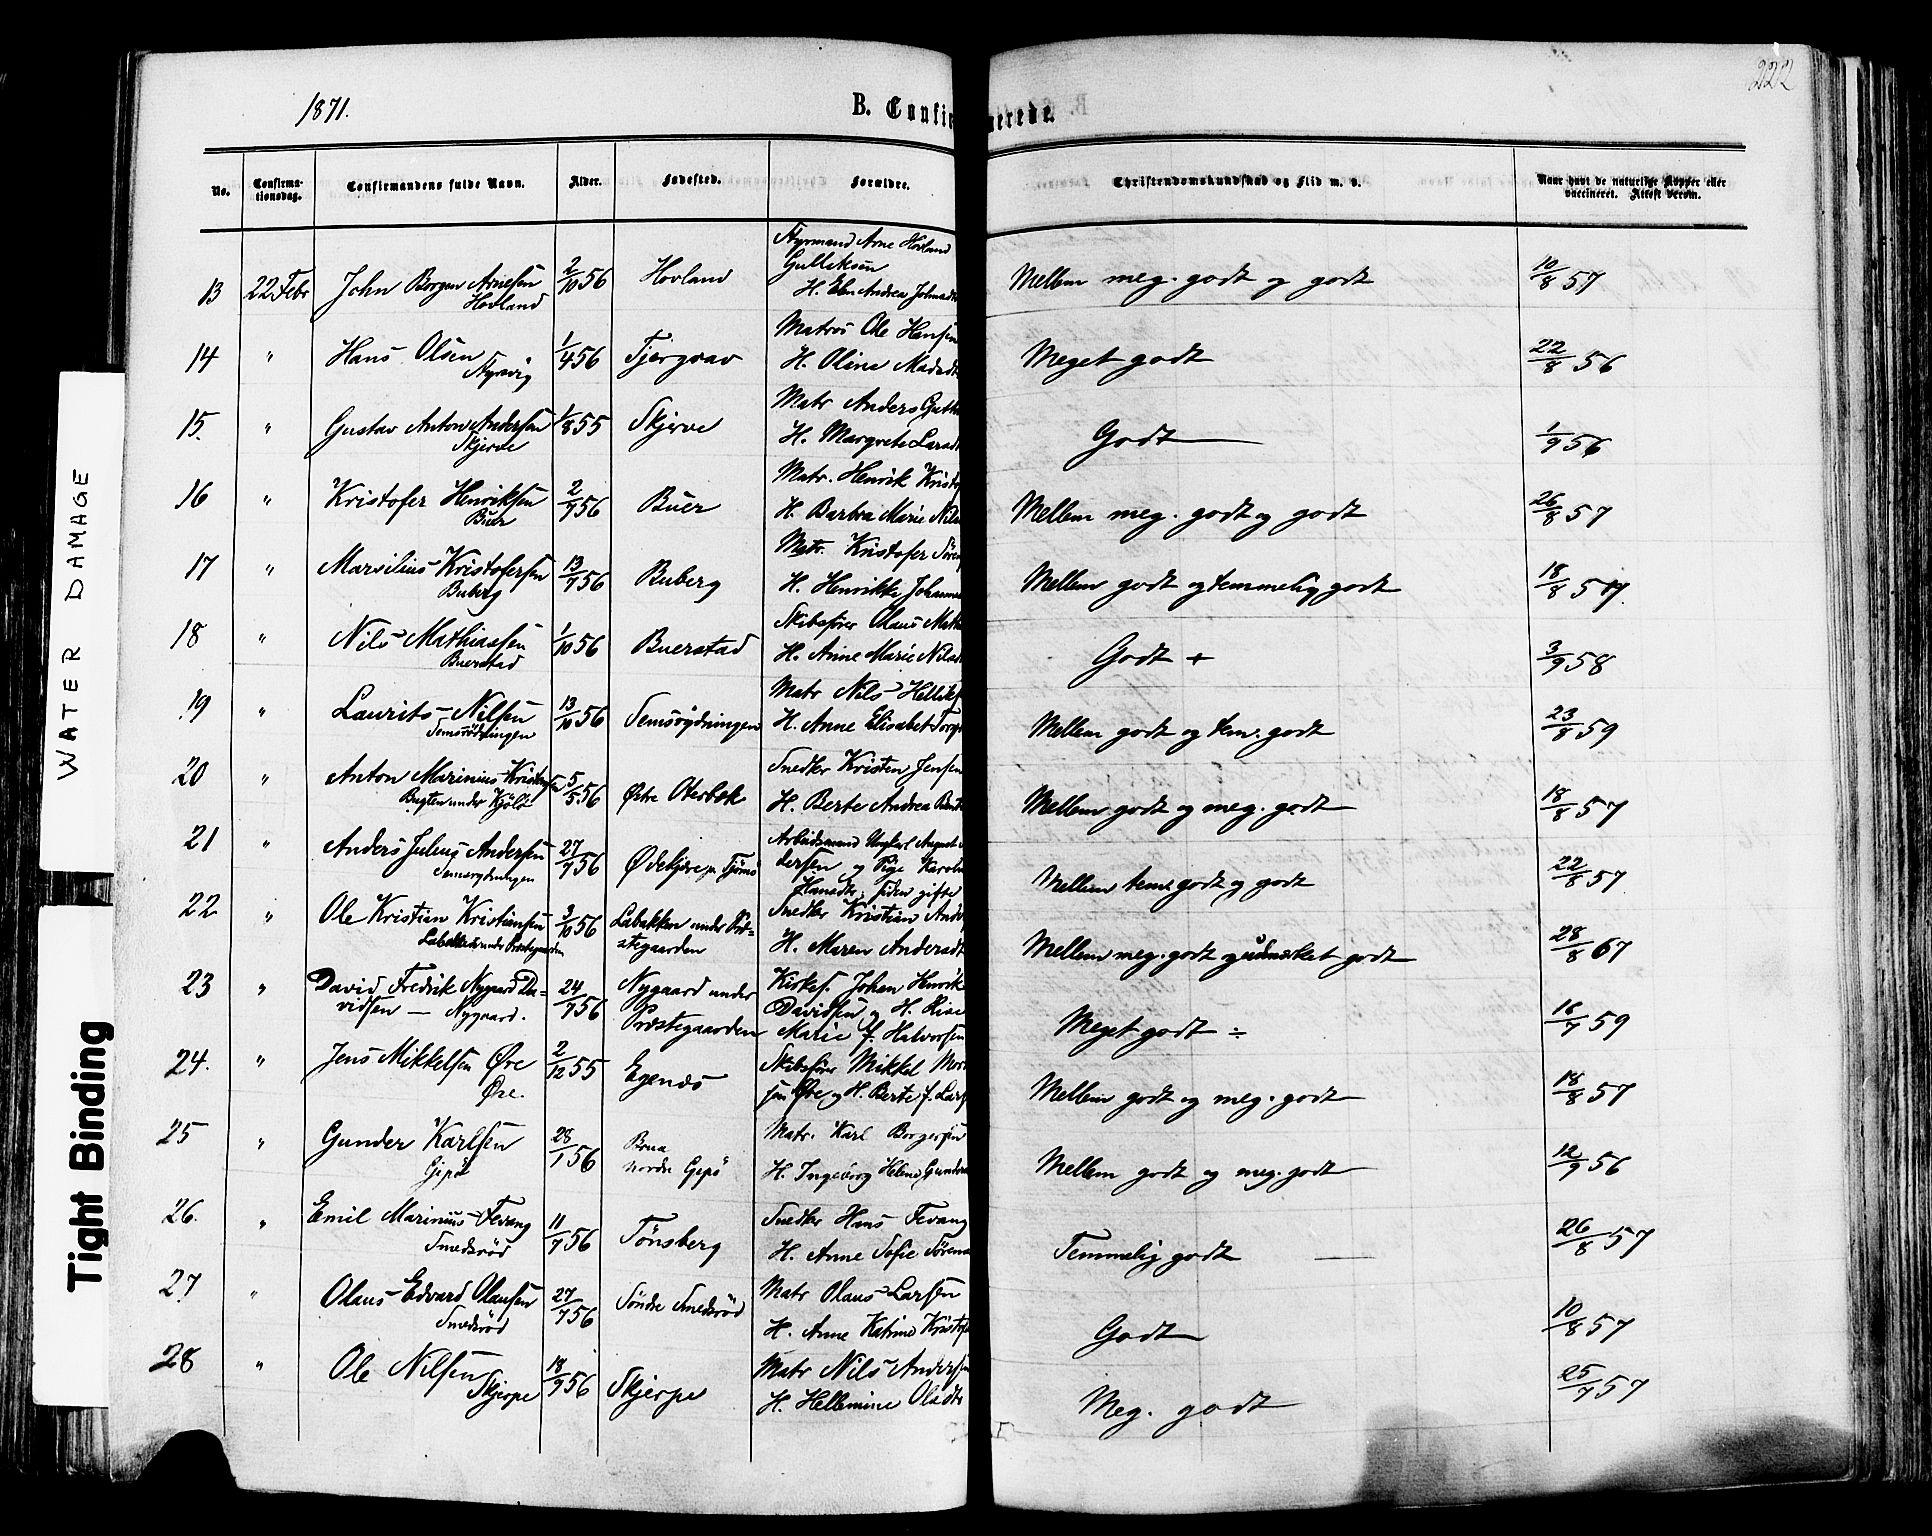 1871.
B. Confirmerede.
222
No.
Confirmationsdag.
Confirmandens fulde Navn.
Alder.
Fødested.
Forældre.
Christendomskundskab og Flid m. v.
Naar havt de naturlige Kopper eller vaccineret. Attest derom.
13 22 Febr John Borgen Arnesen Hovland 2/10 56 Hovland
Styrmand Arne Hovland
Gulliksen
H. Andrea
Mellem meg. godt og godt 10/8 57
14 " Hans Olsen 1/4 56 Tjergrav
Matros Ole Hansen
H. Oline Madsdt
Meget godt 22/8 56
15. " Gustav Anton Andersen Skjerve 1/8 55 Skjerve
Matr Anders
H. Margrete Larsdt
Godt 1/9 56
16 " Kristofer Henriksen Buer 2/7 56 Buer
Matr. Henrik Kristof
H. Barbra Marie Nils
Mellem meg. godt og godt 26/8 57
17 " Marsilius Kristofersen Buberg 13/7 56 Buberg
Matr. Kristofer Sören
H. Henrikke Johanne
Mellem godt og temmelig godt 18/8 57.
18 " Nils Mathiassen Buerstad 1/10 56 Buerstad
Skibsfører Olaus Math
H. Anne Marie Nilsd
Godt + 3/9 58
19 " Laurits Nilsen Semsrödningen 13/10 56
Matr Nils Helliks
H. Anne Elisabet Torg
Mellem godt og tem. godt 23/8 59
20 " Anton Marinius Kristensen Bugten under Kjölö 5/5 56 Østre Oterbek
Snedker Kristen Jensen
H. Berte Andrea
Mellem godt og meg. godt 18/8 57
21 " Anders Julius Andersen 27/7 56
Arbeidsmand Ungkarl August
dersen og Pige Karoline
Hansdtr, siden gifte
Mellem tem. godt og godt 22/8 57
22 " Ole Kristian Kristiansen Labakken under Prestegaarden 3/10 56 Labakken under Præ=
stegaarden
Snedker Kristian Ande
H. Maren Andersdt
Mellem meg. godt og udmærket godt 28/8 67
23 " David Fredrik Nygaard Da-
vidsen — Nygaard. 24/7 56 Nygaard under
Præstegaarden
Kirkes. Johan Henrik
Davidsen og H. Lise
Marie f. Halvorsen
Meget godt ÷ 18/7 59
24. " Jens Mikkelsen Øre Øre. 2/12 55 Egenæs
Skibsfører Mikkel Mor
sen Øre og H. Berte f. Lars
Mellem godt og meg. godt 18/8 57
25 " Gunder Karlsen Gipö 28/1 56 Brua
nordre Gipö
Matr. Karl Borgersen
H. Ingeborg Helene Gunders
Mellem godt og meg. godt 12/9 56
26. " Emil Marinius Fevang Smedsröd 11/7 56 Tönsberg
Snedker Hans Fevang
H. Anne Sofie Sörens
Temmelig godt — 26/8 57
27 " Olaus Edvard Olausen Smedsröd 27/7 56 Söndre Smedsröd
Matr Olaus Larsen
H. Anne Katrine Kristof
Godt 10/8 57
28 " Ole Nilsen Skjerpe 18/9 56 Skjerpe
Matr Nils Andersen
H. Hellemine Olsdtr
Meg. godt 25/7 57
WATER DAMAGE
Tight Binding